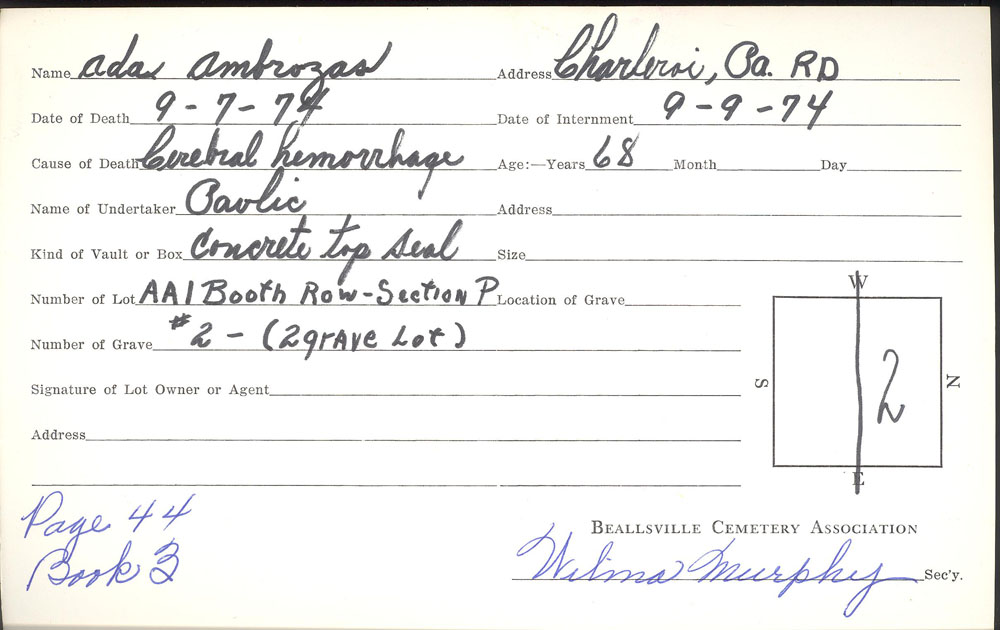 Name Ada Ambrozas Address Charleroi, Pa. RD
Date of Death 9-7-74 Date of Internment 9-9-74
Cause of Death Cerebral hemorrhage Age:—Years 68 Month Day
Name of Undertaker Pavlic Address
Kind of Vault or Box Concrete top seal Size
Number of Lot AA1 Booth Row-Section P Location of Grave
Number of Grave #2 - (2 grave Lot)
Signature of Lot Owner or Agent
Address
W
S 2 N
E
Page 44
Book 3
Beallsville Cemetery Association
Wilma Murphy Sec'y.